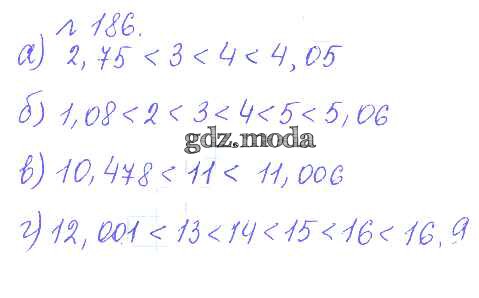 г 186.
а) 2,75 < 3 < 4 < 4,05
б) 1,08 < 2 < 3 < 4 < 5 < 5,06
gdz.moda
в) 10,478 < 11 < 11,006
г) 12,001 < 13 < 14 < 15 < 16 < 16,9